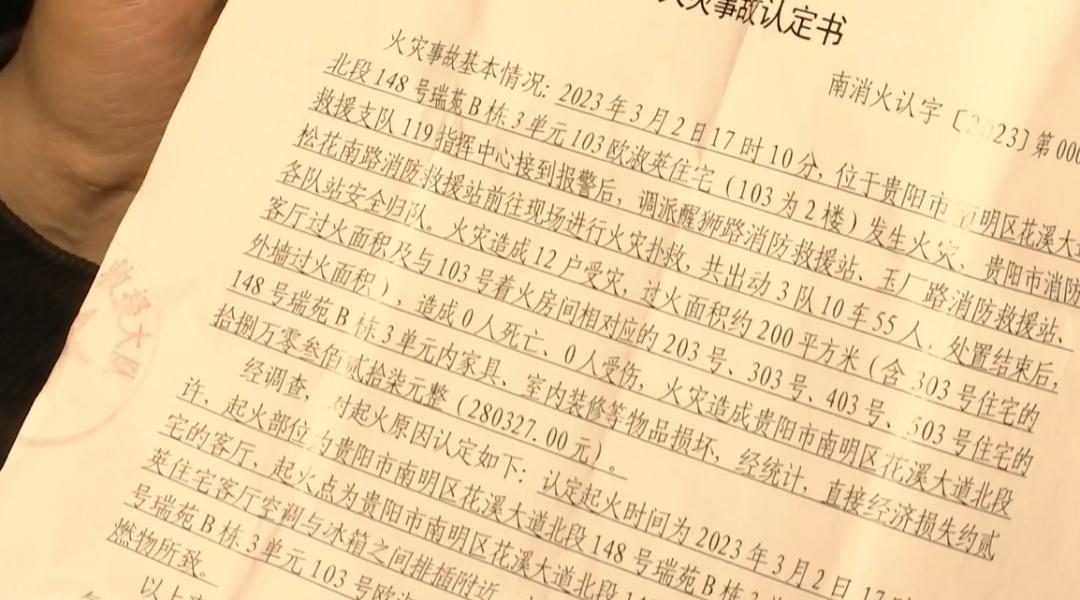 火灾事故认定书
南消火认字〔2023〕第000
火灾事故基本情况：2023年3月2日17时10分，位于贵阳市南明区花溪大道
北段148号瑞苑B栋3单元103欧淑英住宅（103为2楼）发生火灾，贵阳市消防
救援支队119指挥中心接到报警后，调派醒狮路消防救援站、玉厂路消防救援站、
松花南路消防救援站前往现场进行火灾扑救，共出动3队10车55人，处置结束后，
各队站安全归队。火灾造成12户受灾，过火面积约200平方米（含303号住宅的
客厅过火面积及与103号着火房间相对应的203号、303号、403号、503号住宅的
外墙过火面积），造成0人死亡、0人受伤，火灾造成贵阳市南明区花溪大道北段
148号瑞苑B栋3单元内家具、室内装修等物品损坏，经统计，直接经济损失约贰
拾捌万零叁佰贰拾柒元整（280327.00元）。
经调查，对起火原因认定如下：认定起火时间为2023年3月2日17时
许，起火部位为贵阳市南明区花溪大道北段148号瑞苑B栋3单
宅的客厅，起火点为贵阳市南明区花溪大道北段14
英住宅客厅空调与冰箱之间排插附近，
号瑞苑B栋3单元103号欧淑
燃物所致。
以上
救援大队